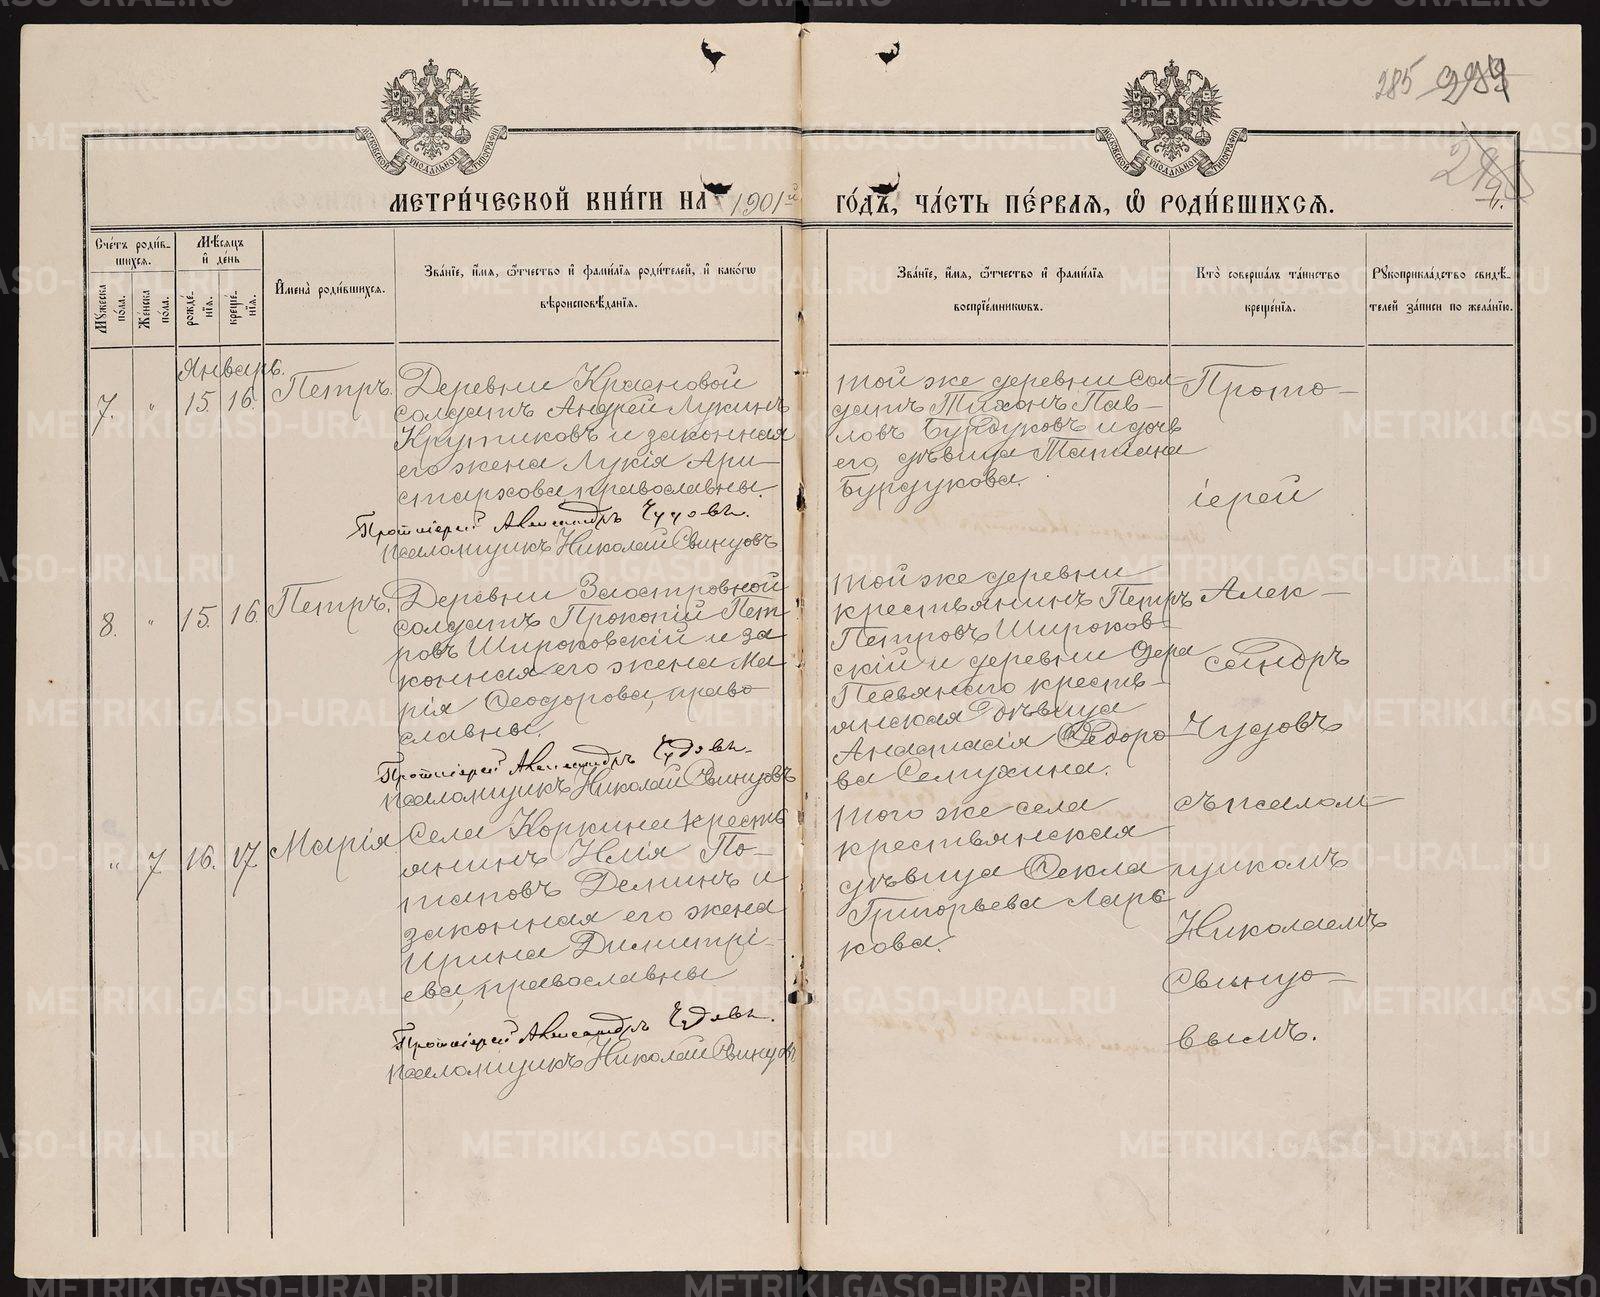 285
МЕТРИ́ЧЕСКОЙ КНИ́ГИ НА 1901й ГО́ДЪ, ЧА́СТЬ ПЕ́РВАѦ, Ѡ РОДИ́ВШИХСѦ.
МОСКОВСКОЙ СИНОДАЛЬНОЙ ТИПОГРАФІИ
МОСКОВСКОЙ СИНОДАЛЬНОЙ ТИПОГРАФІИ
Сче́тъ роди́в-
шихсѧ.
Мꙋжеска по́ла.
Же́нска по́ла.
Мѣ́сѧцъ
и҆ де́нь
рожде́-
нїѧ.
креще́-
нїѧ.
И҆мена̀ роди́вшихсѧ.
Зва́нїе, и҆́мѧ, ѻ҆́тчество и҆ фами́лїѧ роди́телей, и҆ како́гѡ
вѣроисповѣ́данїѧ.
Зва́нїе, и҆́мѧ, ѻ҆́тчество и҆ фами́лїѧ
воспрїе́мникѡвъ.
Кто̀ соверша́лъ та́инство
креще́нїѧ.
Рꙋкоприкла́дство свидѣ́-
телей за́писи по жела́нїю.
Январь.
7. " 15. 16. Петръ.
Деревни Красновой
солдатъ Андрей Лукинъ
Крутиковъ и законная
его жена Лукія Ари-
стархова, православны.
Протоіерей Александръ Чудовъ.
Псаломщикъ Николай Свинцовъ
той же деревни сол-
датъ Тихонъ Пав-
ловъ Бурдуковъ и дочь
его, дѣвица Татіана
Бурдукова.
8. " 15. 16. Петръ.
Деревни Заостровной
солдатъ Прокопій Пет-
ровъ Широковскій и за-
конная его жена Ма-
рія Ѳеодорова, право-
славны.
Протоіерей Александръ Чудовъ.
Псаломщикъ Николай Свинцовъ
той же деревни
крестьянинъ Петръ
Петровъ Широков-
скій и деревни Озера
крестъ-
янская дѣвица
Анастасія Ѳедоро-
ва Семухина.
" 7 16. 17. Марія
Села Коркина кресть-
янинъ Илія По-
таповъ Деминъ и
законная его жена
Ирина Димитрі-
ева, православны
Протоіерей Александръ Чудовъ.
Псаломщикъ Николай Свинцовъ
того же села
крестьянская
дѣвица Ѳекла
Григорьева Ларь-
кова.
Прото-
іерей
Алек-
сандръ
Чудовъ
съ псалом-
щикомъ
Николаемъ
Свинцо-
вымъ.
METRIKI.GASO-URAL.RU